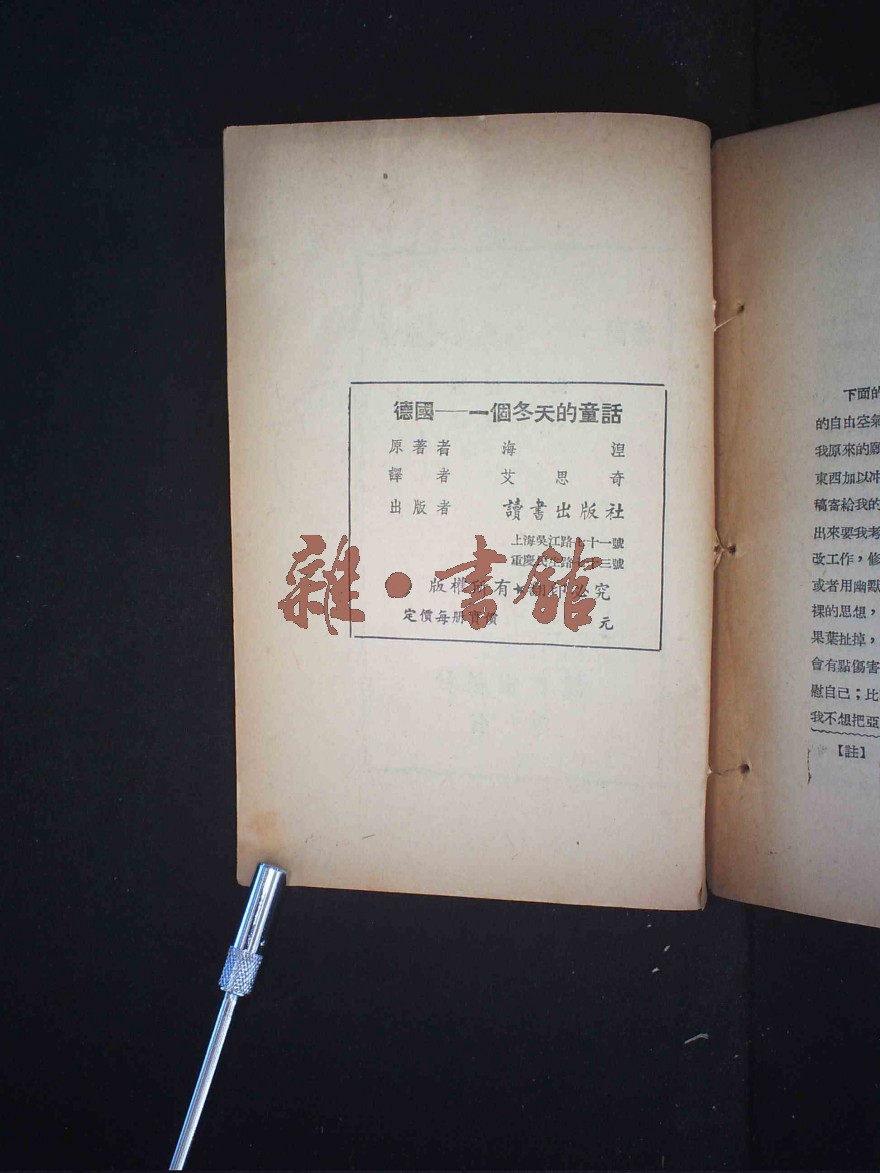 德國——一個冬天的童話
原著者 海涅
譯者 艾思奇
出版者 讀書出版社
上海吳江路七十一號
重慶民生路七十三號
版權所有★翻印必究
定價每册實價 元
雜·書館
下面的
的自由空氣
我原來的願
東西加以冲
稿寄給我的
出來要我考
改工作，修
或者用幽默
裸的思想，
果葉扯掉，
會有點傷害
慰自己；比
我不想把亞
【註】